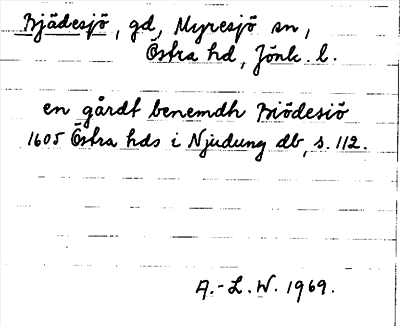 Bjädesjö, gd, Myresjö sn,
Östra hd, Jönk. l.
en gårdt benemdh Biödesiö
1605 Östra hds i Njudung db, s. 112.
A.-L. W. 1969.